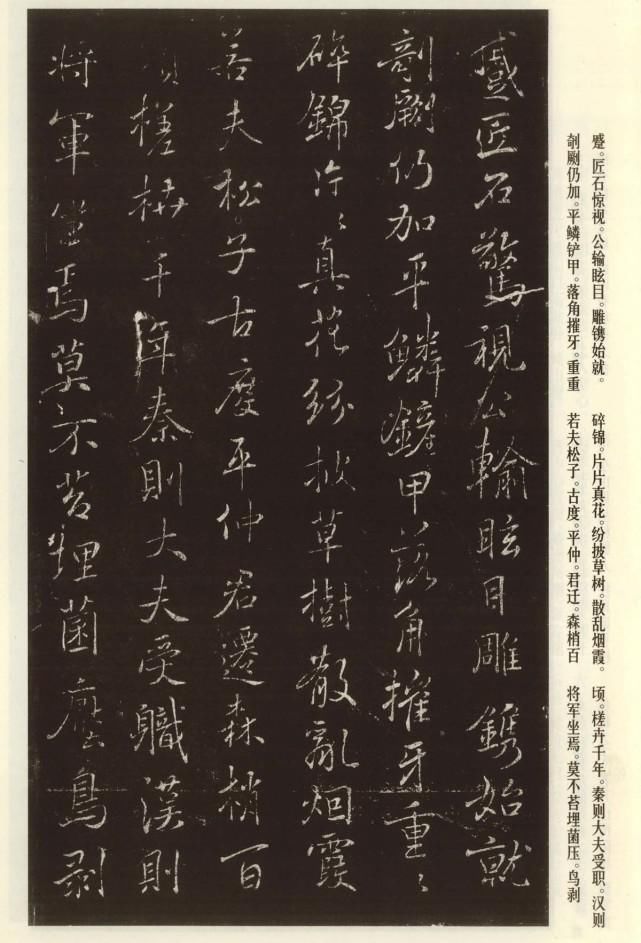 蹙匠石驚視公輸眩目雕鐫始就
剞劂仍加平鱗鏟甲落角摧牙重〻
碎錦片〻真花紛披草樹散亂烟霞
若夫松子古度平仲君遷森梢百
頃槎枿千年秦則大夫受職漢則
將軍坐焉莫不苔埋菌壓鳥剥
蹙。匠石惊视。公输眩目。雕镌始就。
剞劂仍加。平鳞铲甲。落角摧牙。重重
碎锦。片片真花。纷披草树。散乱烟霞。
若夫松子。古度。平仲。君迁。森梢百
顷。槎卉千年。秦则大夫受职。汉则
将军坐焉。莫不苔埋菌压。鸟剥